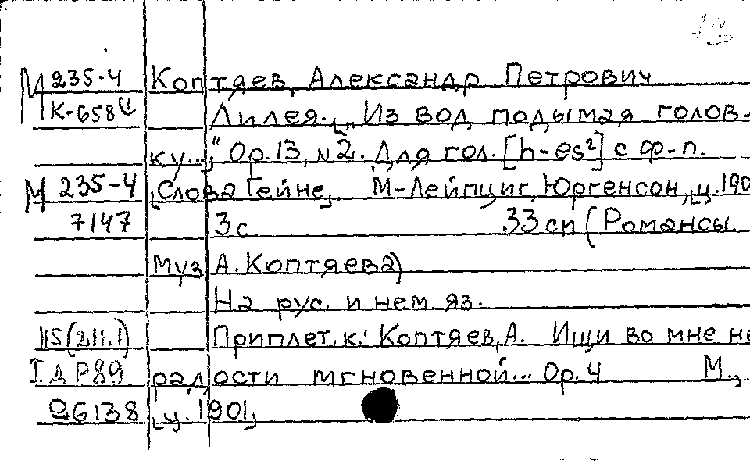 М 235-4 Коптяев, Александр Петрович
К-658 Лилея. „Из вод подымая голов-
ку...," Ор.13, №2. Для гол. [h-es²] с ф-п.
М 235-4 Слова Гейне. М-Лейпциг, Юргенсон, ц.190
7147 3с. 33см (Романсы
муз А. Коптяева)
На рус. и нем. яз.
115(211.1) Приплет. к: Коптяев, А. Ищи во мне не
I д Р89 радости мгновенной... Ор.4 М.,
26138 ц.1901,